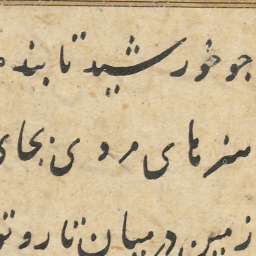 چو خورشید تابنده
هنرهای مردی بجای
زمین در میان تا رو تو